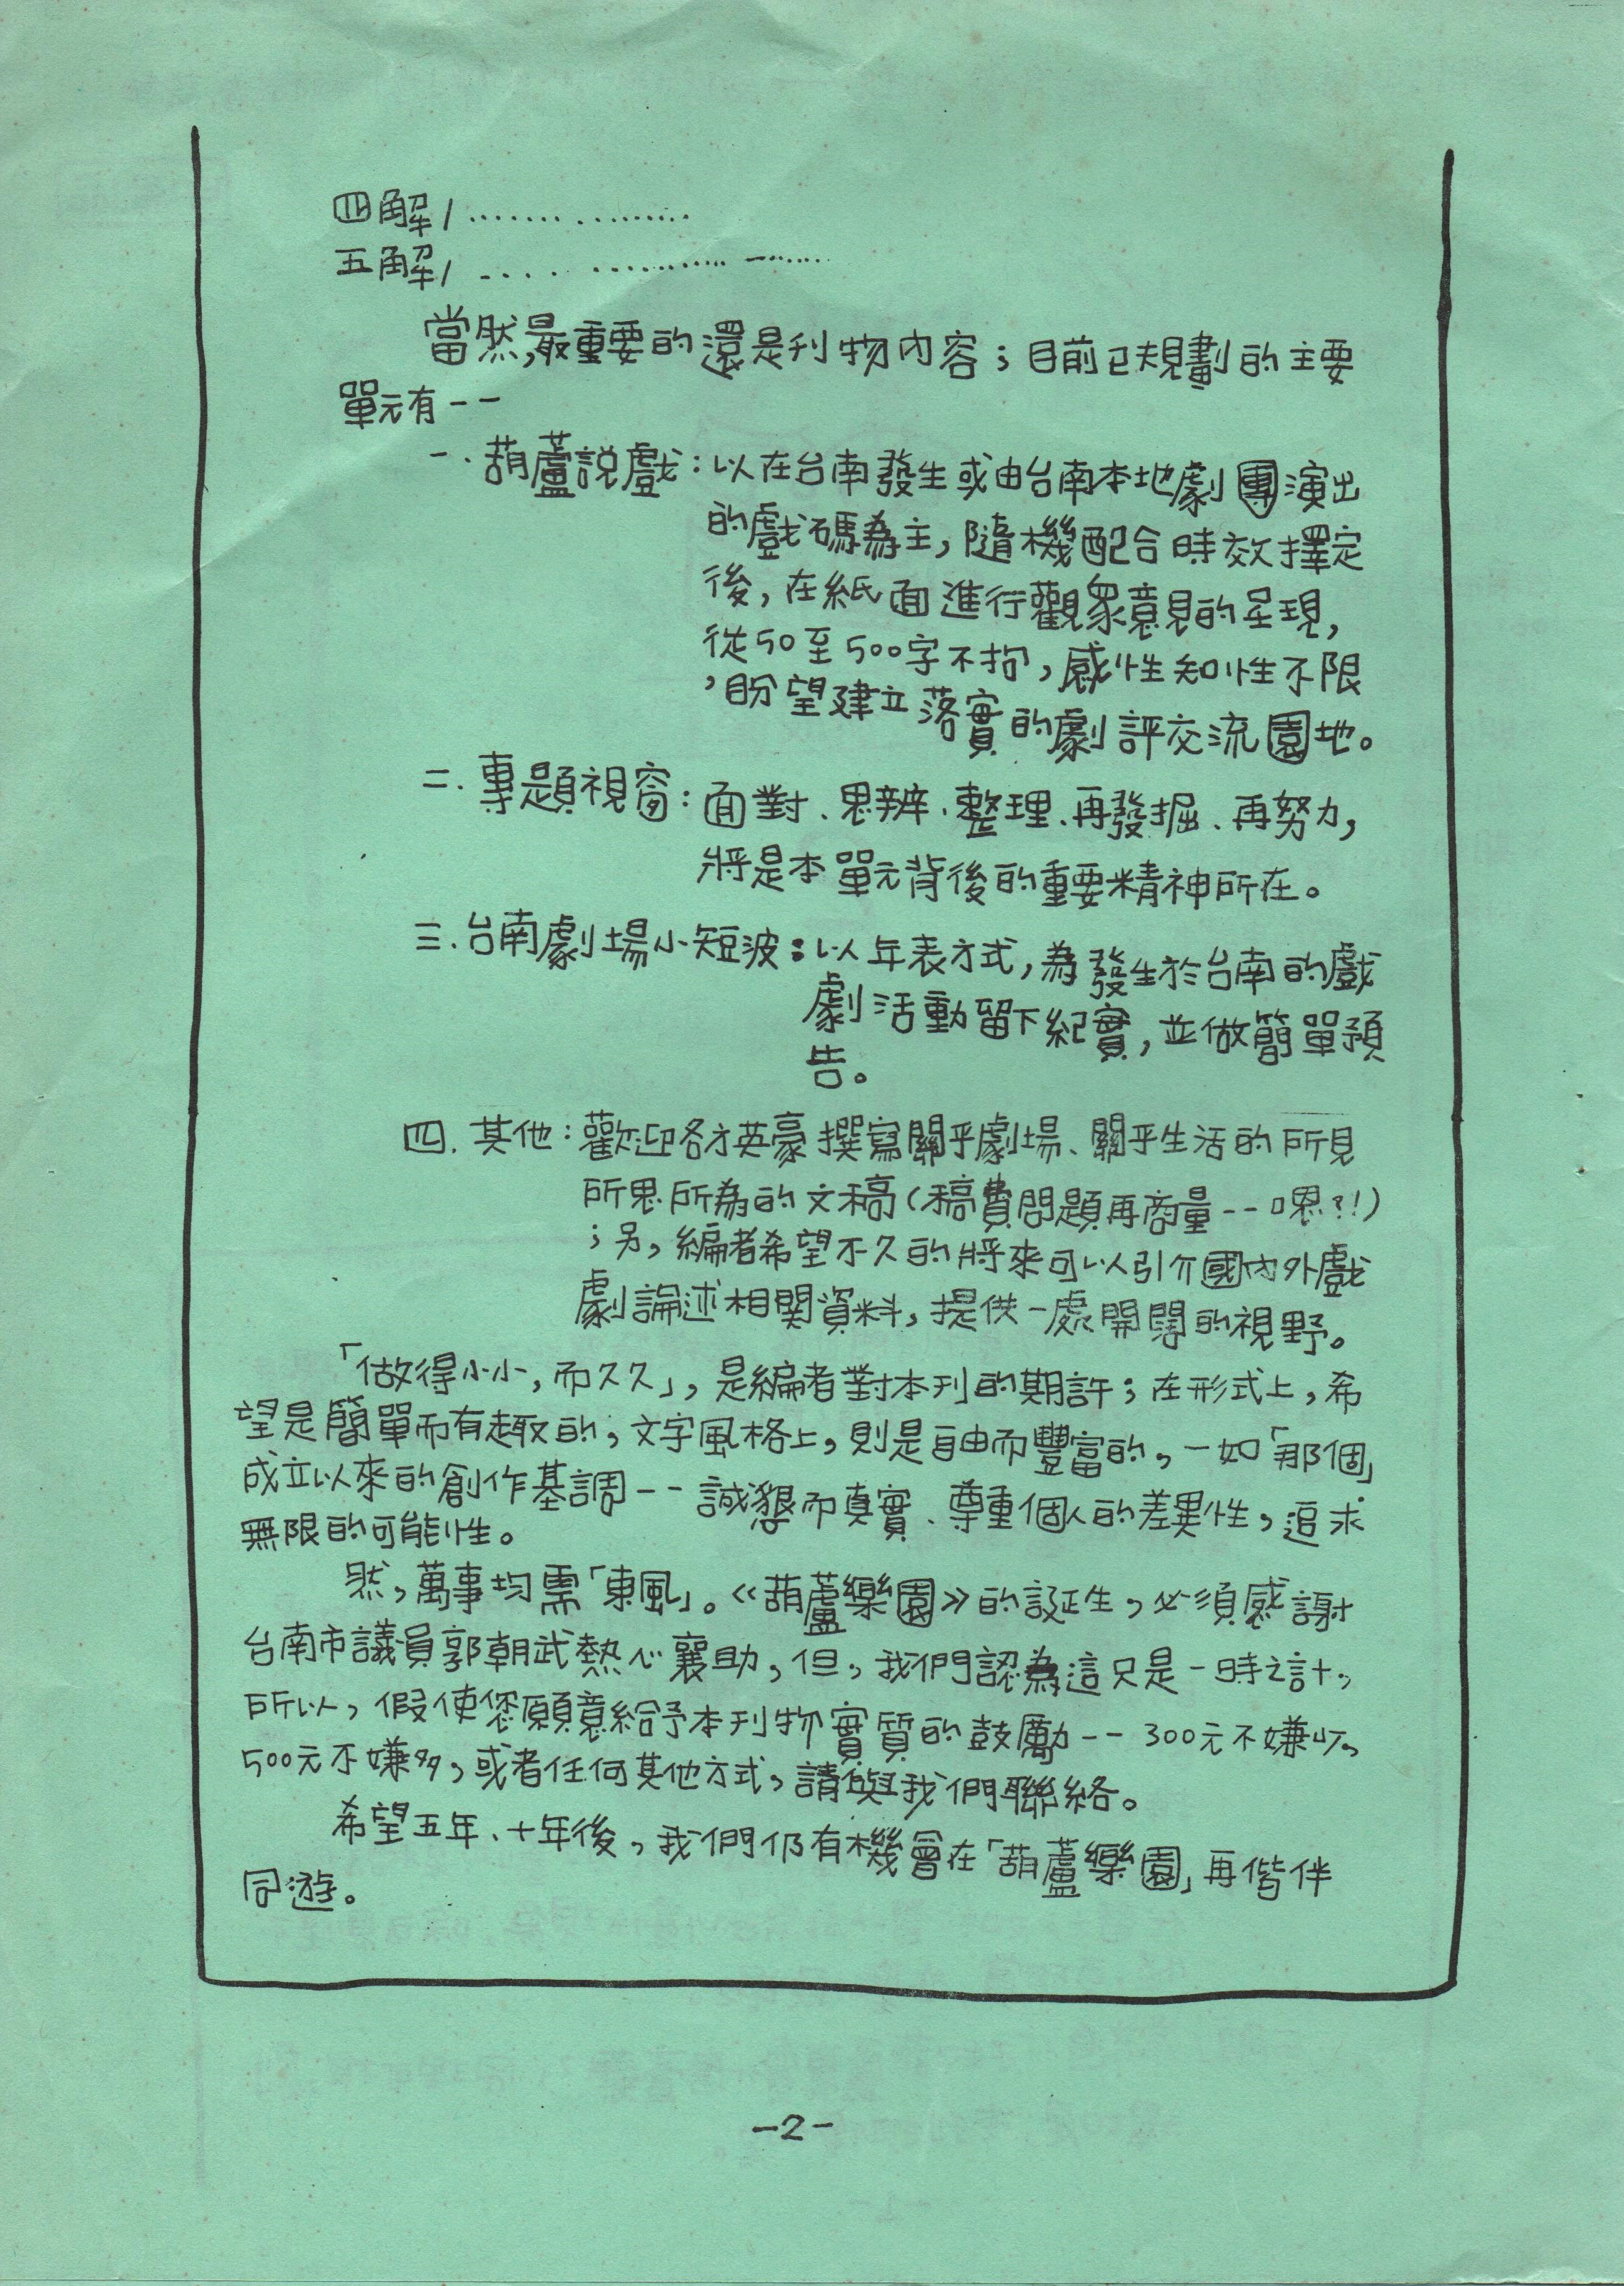 四解/………………
五解/………………
當然,最重要的還是刊物內容；目前已規劃的主要
單元有－－
一.葫蘆說戲：以在台南發生或由台南本地劇團演出
的戲碼為主，隨機配合時效擇定
後，在紙面進行觀眾意見的呈現，
從50至500字不拘，感性知性不限
，盼望建立落實的劇評交流園地。
二.專題視窗：面對、思辨、整理、再發掘、再努力，
將是本單元背後的重要精神所在。
三.台南劇場小短波：以年表方式，為發生於台南的戲
劇活動留下紀實，並做簡單預
告。
四.其他：歡迎各方英豪撰寫關乎劇場、關乎生活的所見
所思所為的文稿（稿費問題再商量－－嗯?!）
；另，編者希望不久的將來可以引介國內外戲
劇論述相関資料，提供一處開闊的視野。
「做得小小，而久久」，是編者對本刊的期許；在形式上，希
望是簡單而有趣的，文字風格上，則是自由而豐富的，一如「那個」
成立以來的創作基調－－誠懇而真實、尊重個人的差異性，追求
無限的可能性。
然，萬事均需「東風」。《葫蘆樂園》的誕生，必須感謝
台南市議員郭朝武熱心襄助，但，我們認為這只是一時之計，
所以，假使您願意給予本刊物實質的鼓勵－－300元不嫌少，
500元不嫌多，或者任何其他方式，請與我們聯絡。
希望五年、十年後，我們仍有機會在「葫蘆樂園」再偕伴
同遊。
－2－